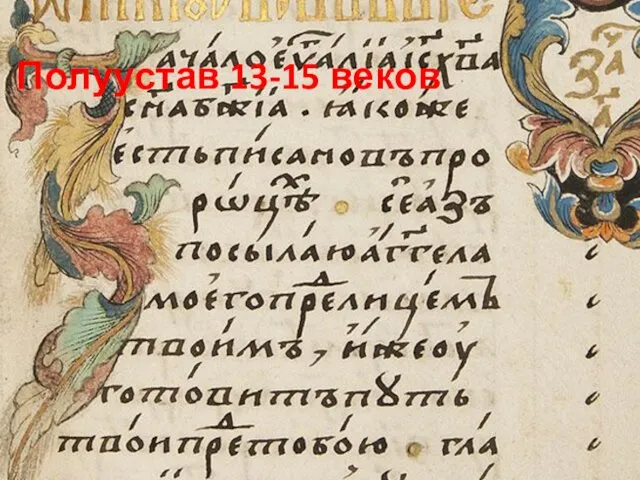 Полуустав 13-15 веков
ачало еѵⷢ҇алїа і҆с х҃ва
сн҃а бж҃їа . ꙗ҆коже
єсть писано въ про
рѡ́цѣⷯ . се а҆зъ
посылаю а҆г҃гела
моего преⷣ лицемъ
твоимъ , и҆же оу
готовитъ путь
твои преⷣ тобою . гла